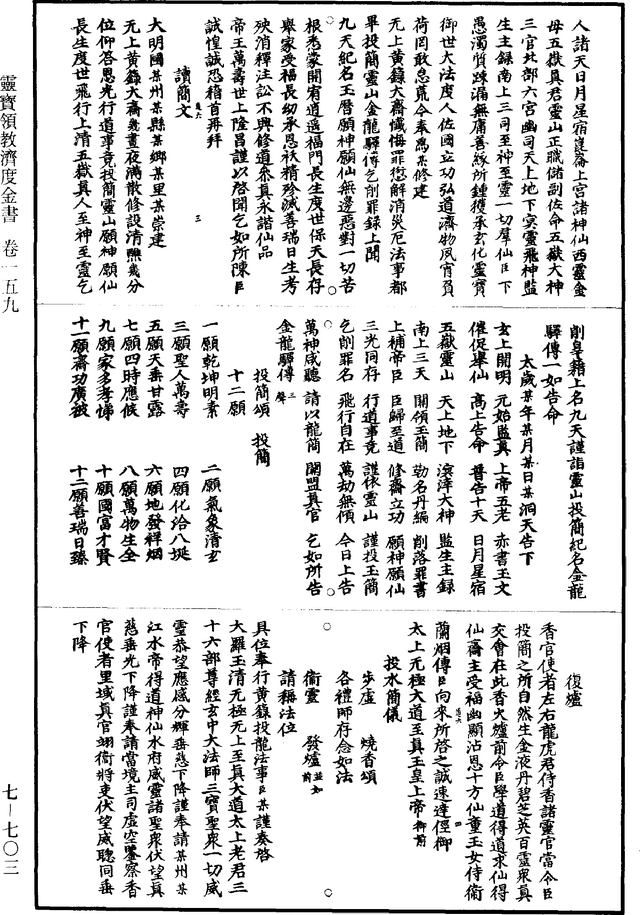 靈寶領教濟度金書　卷一五九
七—七〇三
人諸天日月星宿崑崙上宮諸神仙西靈金
母五嶽真君靈山正職儲副佐命五嶽大神
三官北部六宮幽司天上地下冥靈飛神監
生主録南上三司至神至靈一切羣仙臣下
愚濁質踈漏無庸善緣所鍾獲承玄化靈寶
御世大法度人佐國立功弘道濟物夙宵負
荷罔敢怠荒今奉爲某修建
无上黄籙大齋懺悔罪愆解消災厄法事都
畢投簡靈山金龍驛傳乞削罪録上聞
九天紀名玉曆願神願仙無邊惡對一切苦
根悉蒙開宥逍遥福門長生度世保天長存
舉家受福長幼承恩袄精殄滅善瑞日生考
殃消釋注訟不興修道衆真永諧仙品
帝王萬壽世上隆昌謹以啓聞乞如所陳臣
誠惶誠恐稽首再拜
讀簡文
大明國某州某縣某鄉某里某崇建
无上黄籙大齋幾晝夜滿散修設清醮幾分
位仰答恩光行道事竟投簡靈山願神願仙
長生度世飛行上清五嶽真人至神至靈乞
削皇籍上名九天謹詣靈山投簡紀名金龍
驛傳一如告命
太歲某年某月某日某洞天告下
玄上開明　元始監真　上帝五老　赤書玉文
催促羣仙　髙上告命　普告十天　日月星宿
五嶽靈山　天上地下　溟涬大神　監生主録
南上三天　開領玉簡　勒名丹編　削落罪書
上補帝臣　臣歸至道　修齋立功　願神願仙
三光同存　行道事竟　謹依靈山　謹投玉簡
乞削罪名　飛行自在　萬劫無傾　今日上告
萬神咸聽　請以龍簡　關盟真官　乞如所告
金龍驛傳三聲
投簡頌　投簡
十二願
一願乾坤明素　二願氣象清玄
三願聖人萬壽　四願化洽八埏
五願天垂甘露　六願地發祥烟
七願四時應候　八願萬物生全
九願家多孝悌　十願國富才賢
十一願齋功廣被　十二願善瑞日臻
復爐
香官使者左右龍虎君侍香諸靈官當令臣
投簡之所自然生金液丹碧芝英百靈衆真
交會在此香火爐前令臣學道得道求仙得
仙齋主受福幽顯沾恩十方仙童玉女侍衛
蘭烟傳臣向來所啓之誠速達徑御
太上无極大道至真玉皇上帝御前
投水簡儀
步虛　燒香頌
各禮師存念如法
衛靈　發爐並如前
請稱法位
具位奉行黄籙投龍法事臣某謹奏啓
大羅玉清无極无上至真大道太上老君三
十六部尊經玄中大法師三寶聖衆一切威
靈恭望應感分輝垂慈下降謹奉請某州某
江水帝得道神仙水府威靈諸聖衆伏望真
慈垂光下降謹奉請當境主司虚空鑒察香
官使者里域真官翊衛將吏伏望威聰同垂
下降